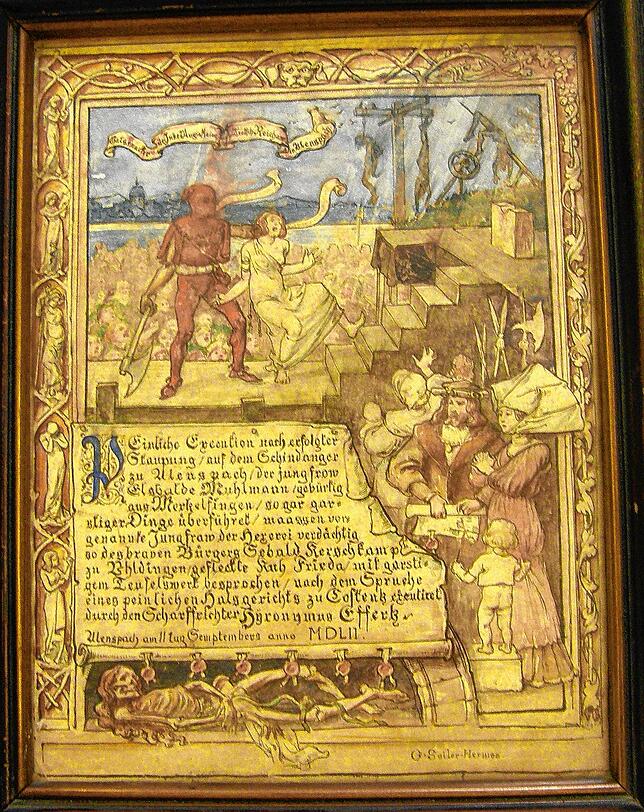 Peinliche Execution nach erfolgter
Staupung / auf dem Schindanger
zu Ulenspach / der jungfrow
Elsbalde Mühlmann / gebürtig
aus Merkelfingen / so gar gar-
stiger Dinge überführet / maassen von
genannte Jungfraw der Hexerei verdächtig
so des braven Bürgers Sebald Kerschkamps
zu Uhldingen / gefleckte Kuh Frieda / mit garsti-
gem Teufelswerk besprochen / nach dem Spruche
eines peinlichen Halsgerichts zu Costentz exeutiret
durch den Scharffrichter Hyronymus Effertz.
Ulenspach am 11 tag Semptembers anno MDLII
G. Seiler-Hermes